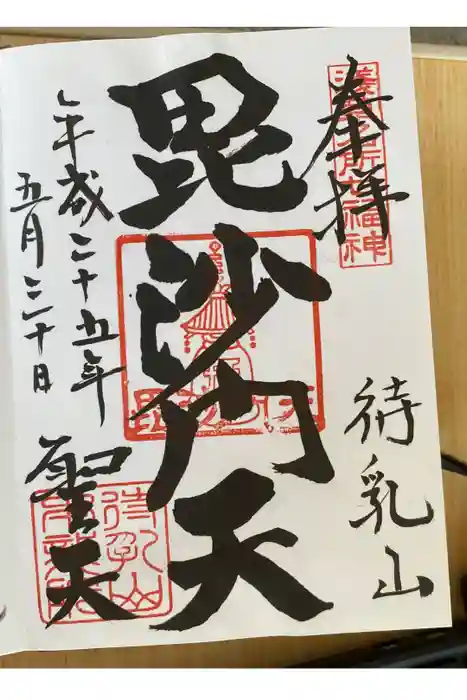 奉拝
浅草名所七福神
待乳山
毘沙門天
平成二十五年
五月三十日
聖天
待乳山
本龍院